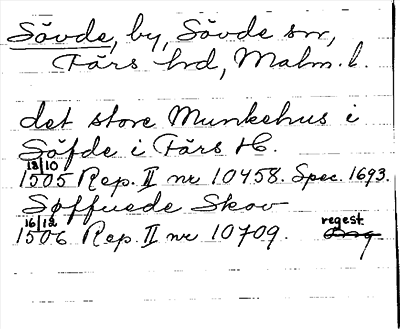 Sövde, by, Sövde sn,
Färs hrd, Malm. l.
det store Munkehus i
Söfde i Färs H.
18/10
1505 Rep. II nr 10458. Spec. 1693.
Søffuede Skov
16/12 regest.
1506 Rep. II nr 10709.